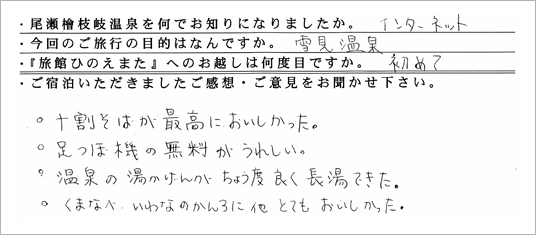 ・尾瀬檜枝岐温泉を何でお知りになりましたか。 インターネット
・今回のご旅行の目的はなんですか。 雪見温泉
・『旅館ひのえまた』へのお越しは何度目ですか。 初めて
・ご宿泊いただきましたご感想・ご意見をお聞かせ下さい。
○ 十割そばが最高においしかった。
○ 足つぼ機の無料がうれしい。
○ 温泉の湯かげんがちょう度良く長湯できた。
○ くまなべ、いわなのかんろに、他とてもおいしかった。